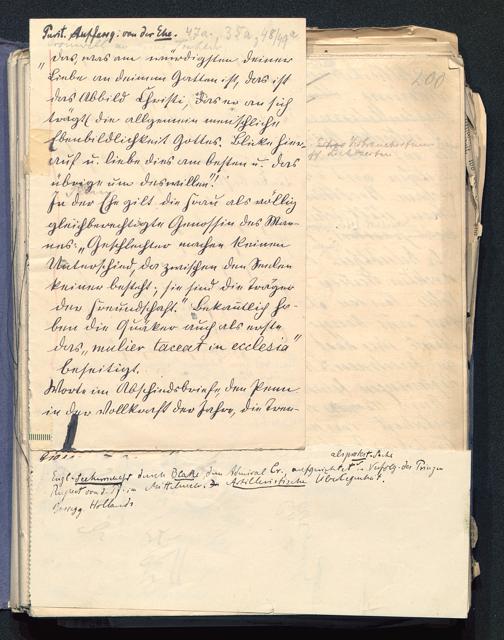 Purit. Auffassg. von der Ehe. 47a, 35a, 48/49a
„Das, was am würdigsten deiner
Liebe an deinem Gatten ist, das ist
das Abbild Christi, das er an sich
trägt (die allgemein menschliche
Ebenbildlichkeit Gottes. Blicke hier-
auf u. liebe dies am besten u. das
übrige um deswillen“.
In der Ehe gilt die Frau als völlig
gleichberechtigte Genossin des Man-
nes: „Geschlechter machen keinen
Unterschied, da zwischen den Seelen
keiner besteht; sie sind die Träger
der Freundschaft.“ Bekanntlich ha-
ben die Quäker auch als erste
das „mulier taceat in ecclesia“
beseitigt.
Worte im Abschiedsbriefe, den Penn
in der Vollkraft der Jahre, die Tren-
200
als protest. Sache
Engl. Seeherrschaft durch Blake den Admiral Cr. aufgerichtet in Verfolg. des Prinzen
Rupert von d. Pf. im Mittelmeer. Artilleristische Überlegenheit.
Hollands